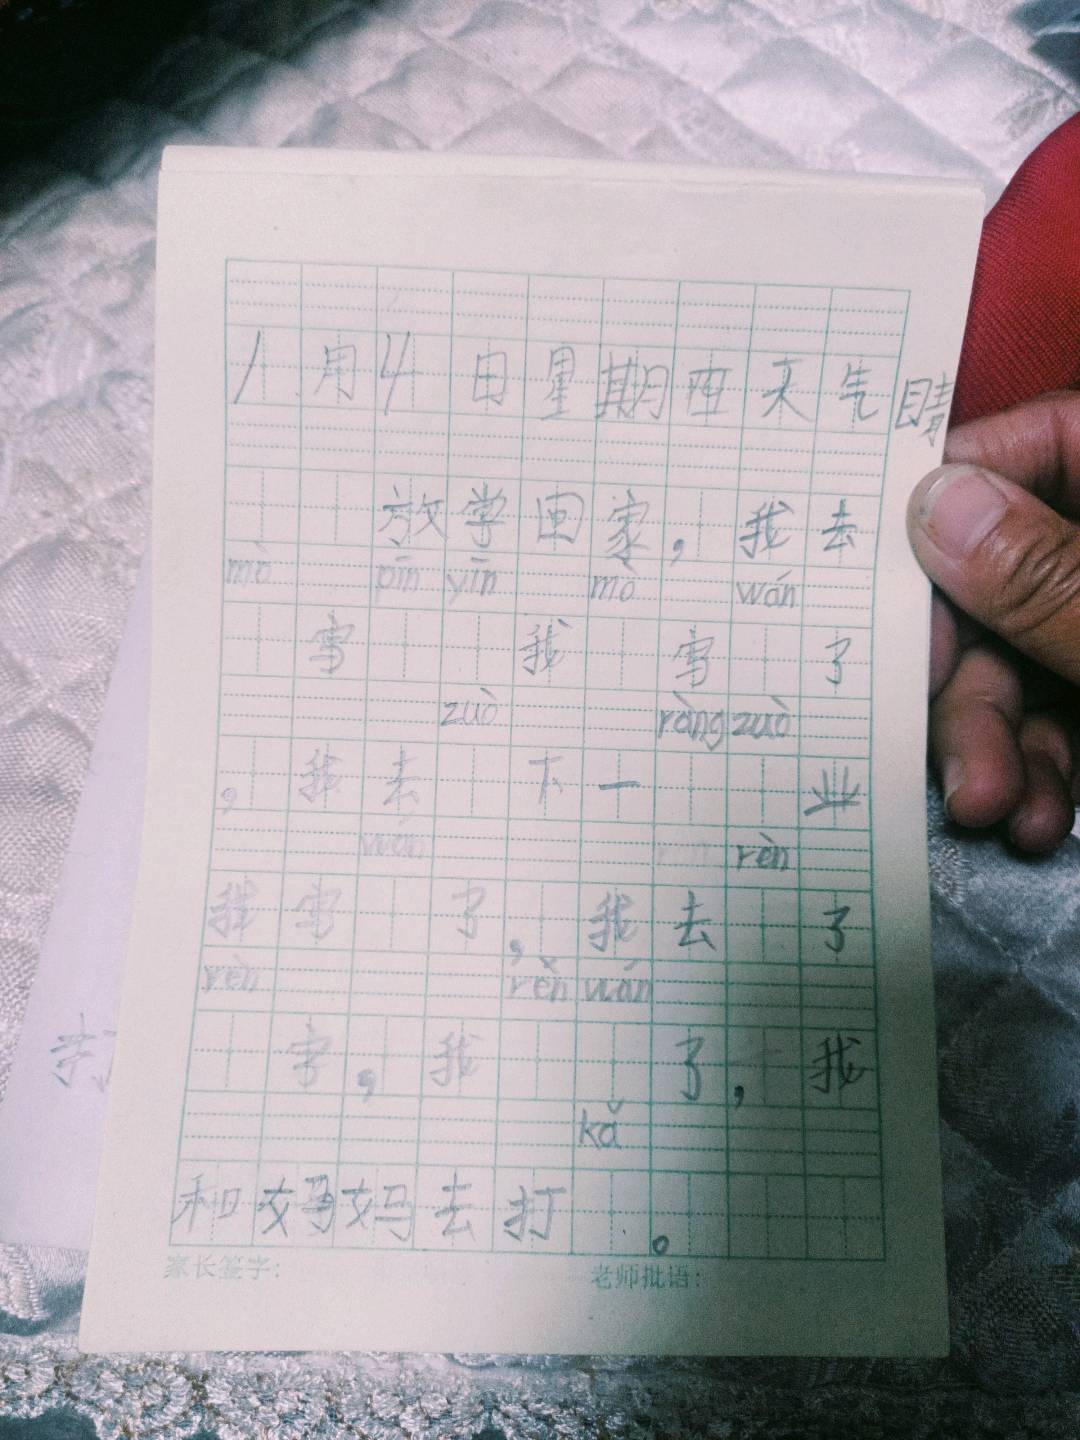 1月4日星期四天气晴
放学回家，我去
mò pīn yīn mò wán
写 我 写 了
zuò ràng zuò
，我去 下一 业
wán rèn
我写 了，我去 了
rèn rèn wán
字，我 了，我
kǎ
和妈妈去打 。
家长签字: 老师批语: